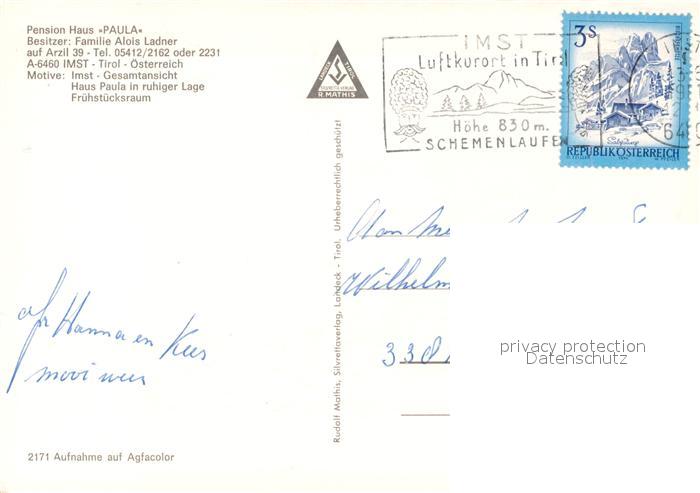 Pension Haus »PAULA«
Besitzer: Familie Alois Ladner
auf Arzl 39 - Tel. 05412/2162 oder 2231
A-6460 IMST - Tirol - Österreich
Motive: Imst - Gesamtansicht
Haus Paula in ruhiger Lage
Frühstücksraum
R. MATHIS
IMST
Luftkurort in Tirol
Höhe 830 m.
SCHEMENLAUFEN
3S
REPUBLIK ÖSTERREICH
Rudolf Mathis, Silvrettaverlag, Landeck - Tirol. Urheberrechtlich geschützt!
Wilhelm
338
Hanna en Kees
mooi weer
privacy protection
Datenschutz
2171 Aufnahme auf Agfacolor